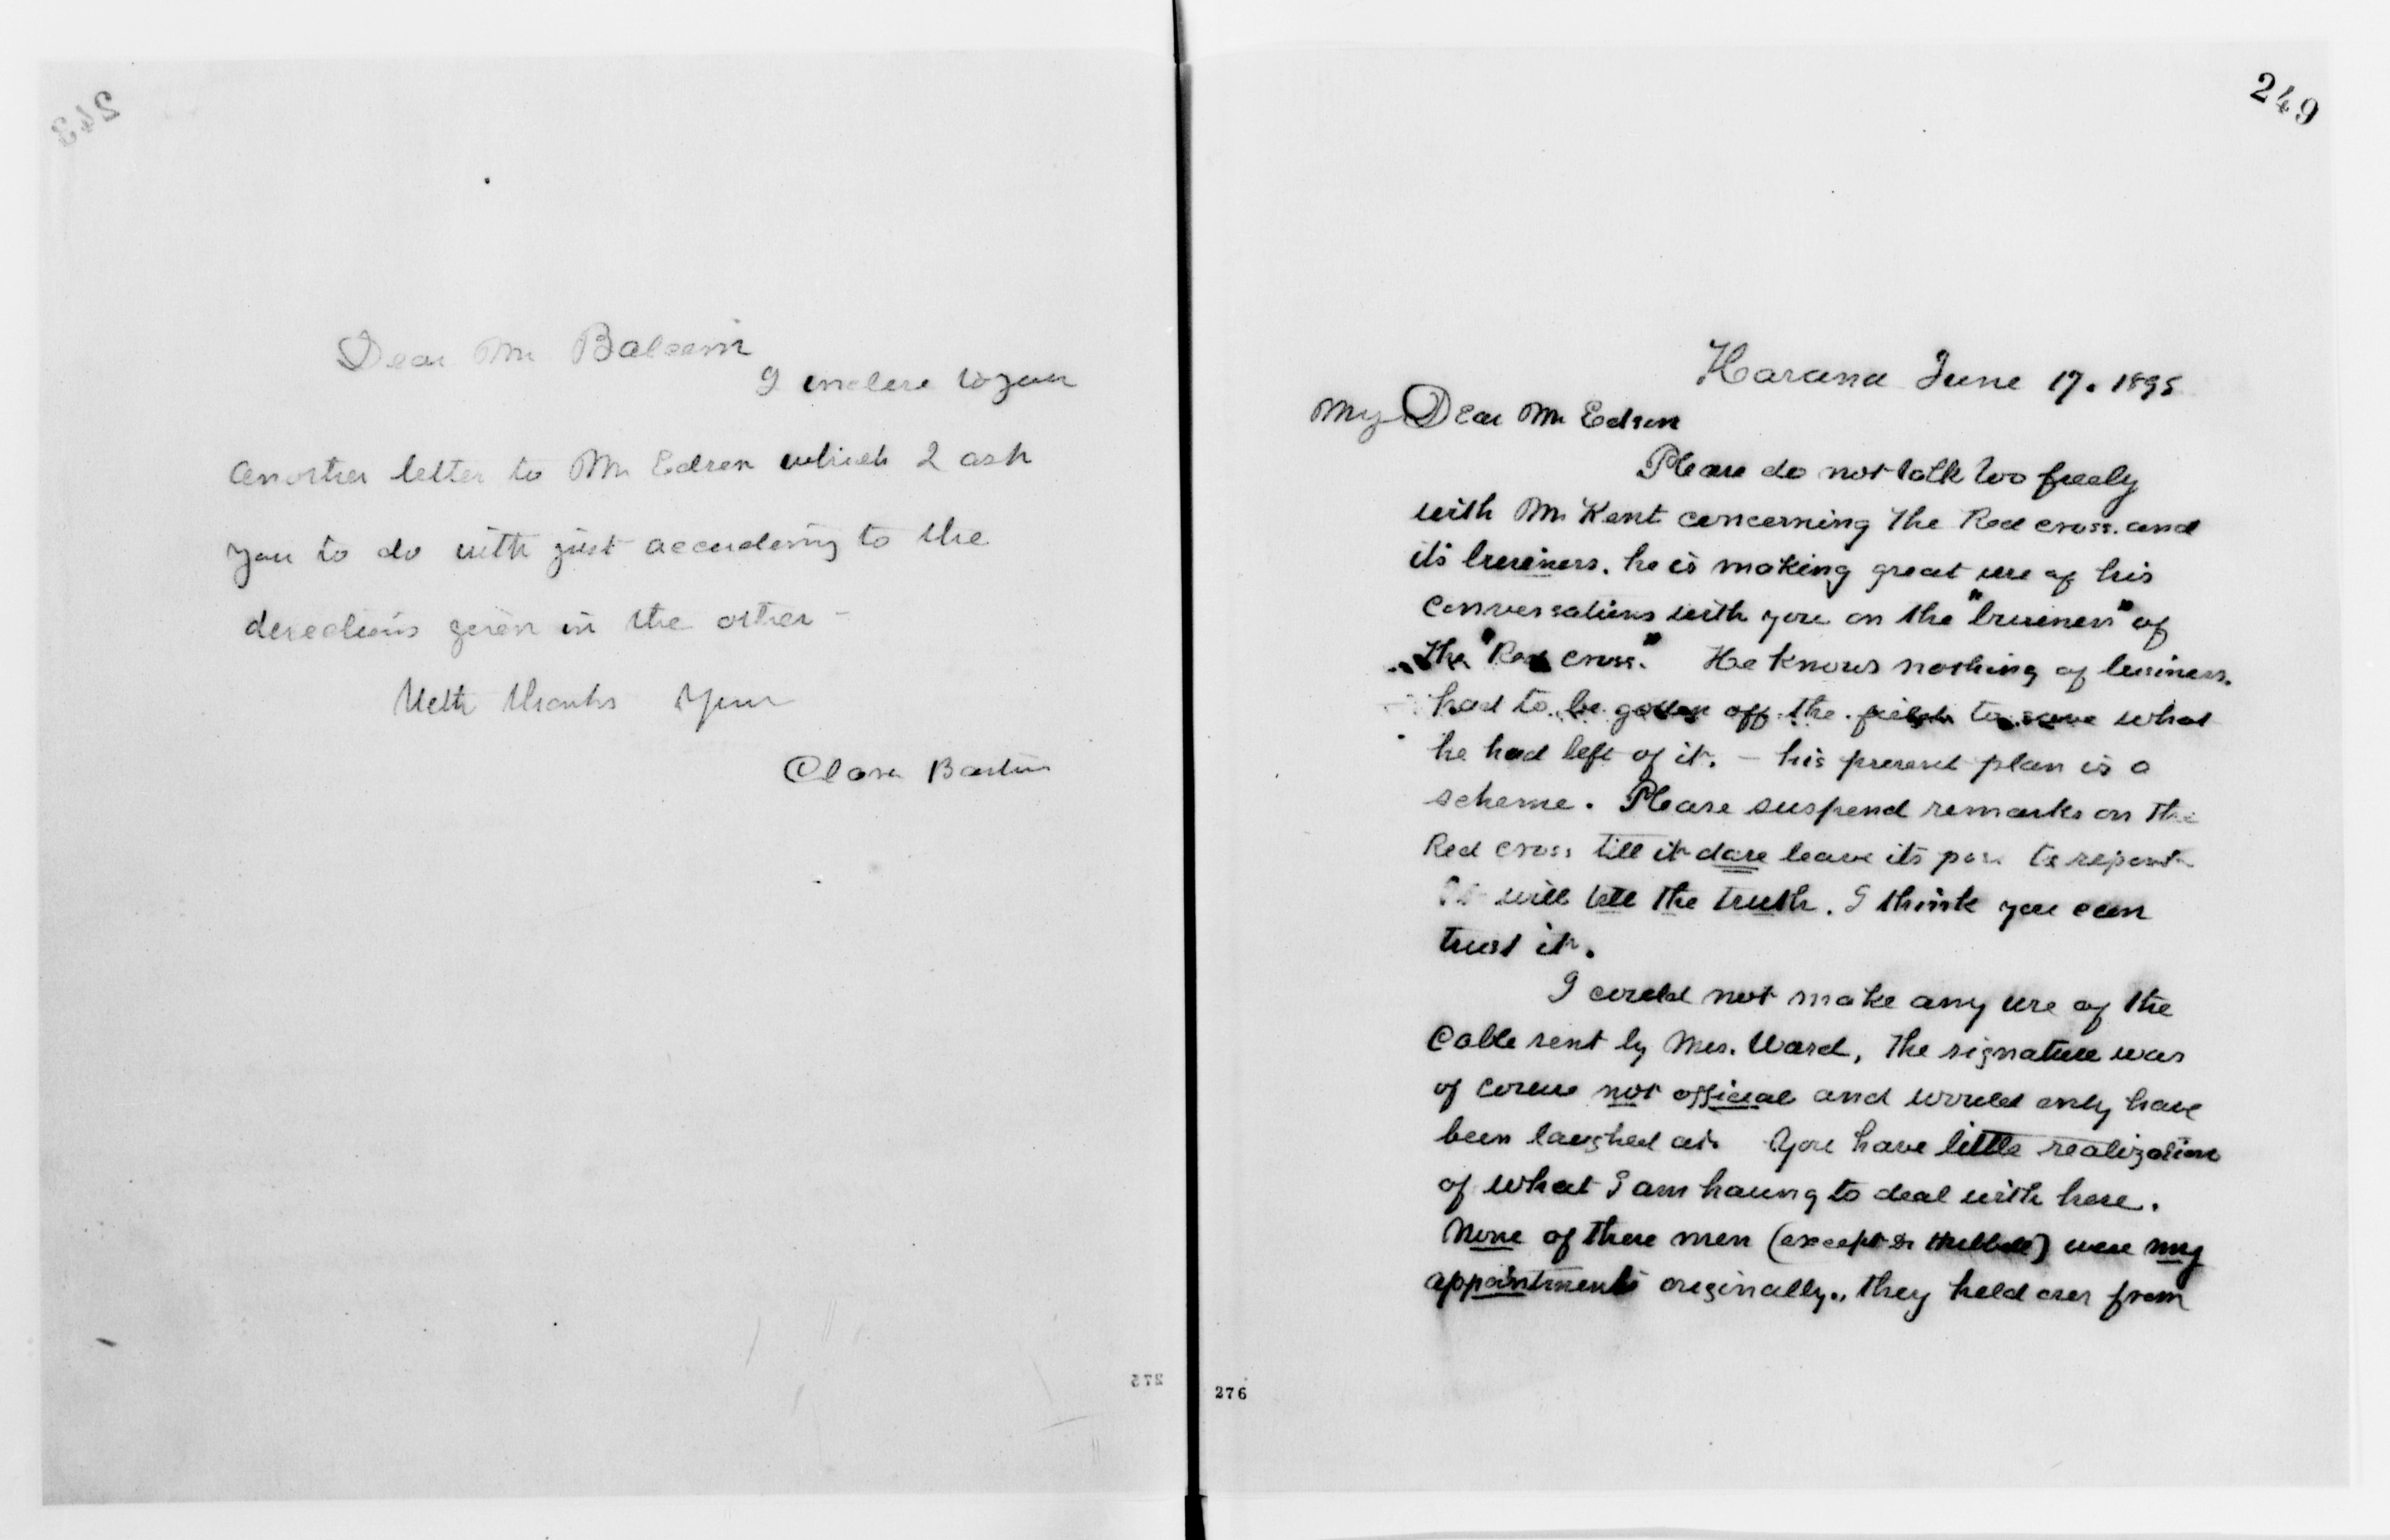 Dear Mr Balcom
I inclose to you
another letter to Mr Edson which I ask
you to do with just according to the
directions given in the other -
With thanks Yours
Clara Barton
275
249
Havana June 17. 1895
My Dear Mr Edson
Please do not talk too freely
with Mr Kent concerning the Red cross. and
its business. he is making great use of his
conversations with you on the "business" of
the "Red cross." He knows nothing of business.
had to be gotten off the field to save what
he had left of it. - his present plan is a
scheme. Please suspend remarks on the
Red cross till it dare leave its post to report
It will tell the truth. I think you can
trust it.
I could not make any use of the
Cable sent by Mrs. Ward, the signature was
of course not official and would only have
been laughed at. You have little realization
of what I am having to deal with here.
None of these men (except Dr Hubbell) were my
appointments originally., they held over from
276